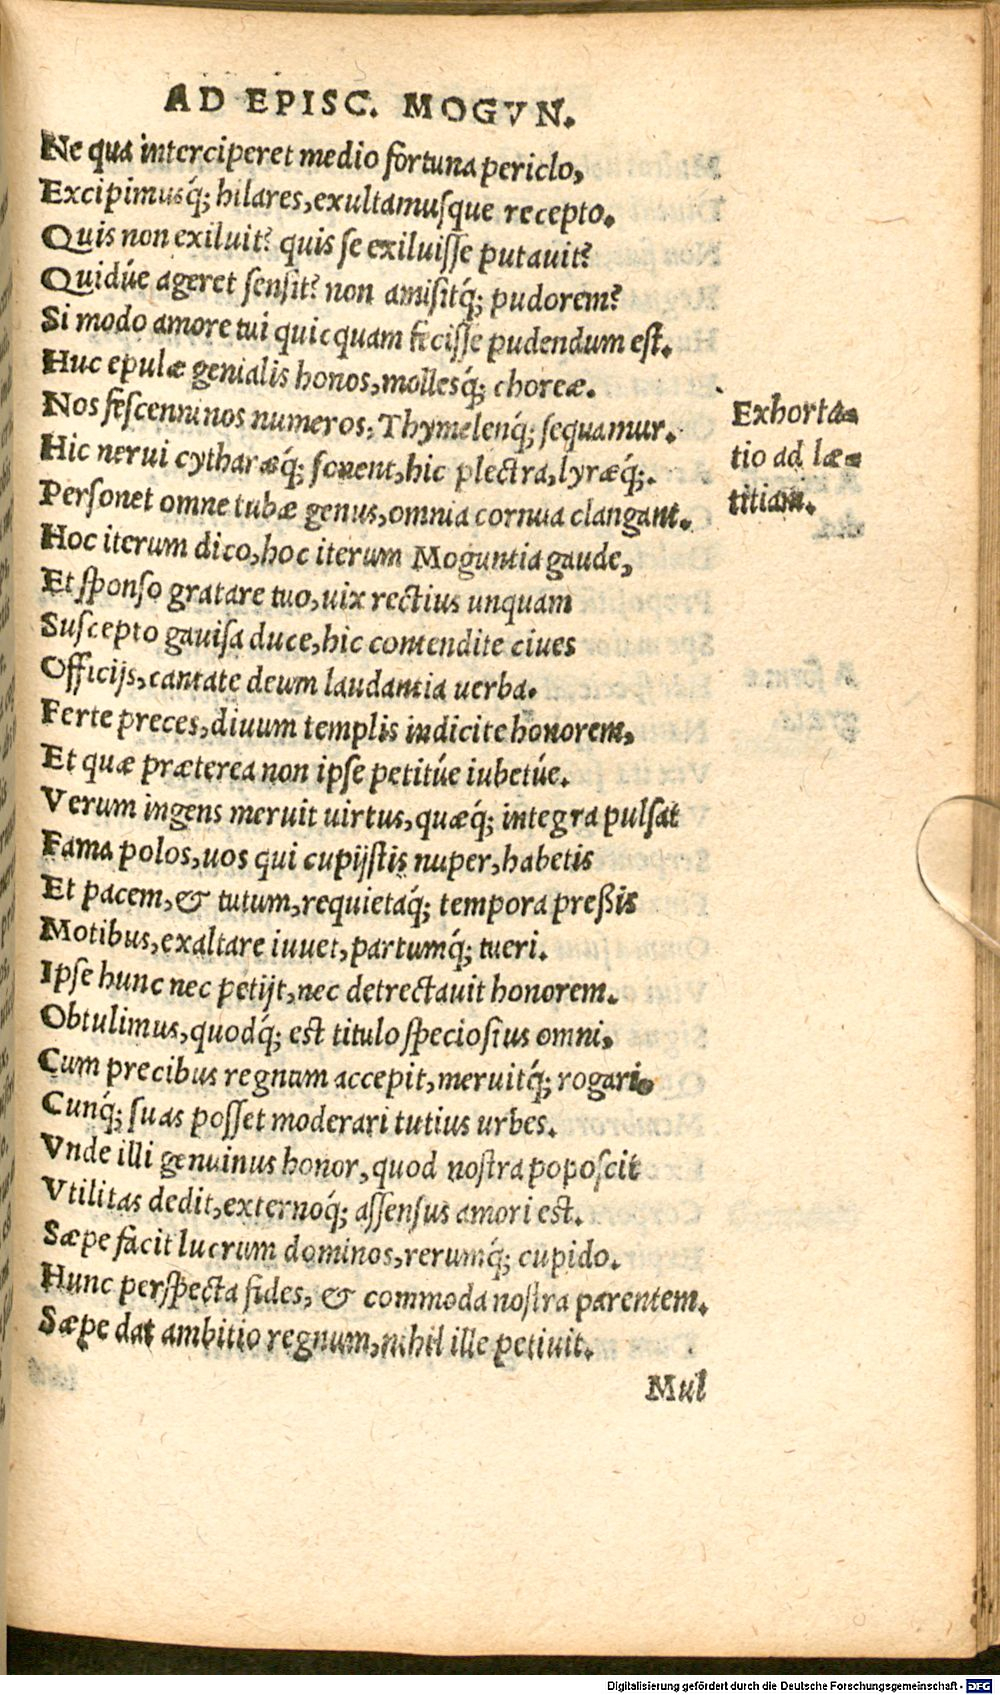 AD EPISC. MOGVN.
Ne qua interciperet medio fortuna periclo,
Excipimusq́; hilares, exultamusque recepto.
Quis non exiluit? quis se exiluisse putauit?
Quidúe ageret sensit? non amisitq́; pudorem?
Si modo amore tui quicquam fecisse pudendum est.
Huc epulæ genialis honos, mollesq́; choreæ.
Nos fescenninos numeros, Thymelenq́; sequamur.
Hic nerui cytharæq́; sonent, hic plectra, lyræq́;.
Personet omne tubæ genus, omnia cornua clangant.
Hoc iterum dico, hoc iterum Moguntia gaude,
Et sponso gratare tuo, uix rectius unquam
Suscepto gauisa duce, hic contendite ciues
Officijs, cantate deum laudantia uerba.
Ferte preces, diuum templis indicite honorem,
Et quæ præterea non ipse petitúe iubetúe.
Verum ingens meruit uirtus, quæq́; integra pulsat
Fama polos, uos qui cupijstis nuper, habetis
Et pacem, & tutum, requietaq́; tempora preßis
Motibus, exaltare iuuet, partumq́; tueri.
Ipse hunc nec petijt, nec detrectauit honorem.
Obtulimus, quodq́; est titulo speciosius omni,
Cum precibus regnum accepit, meruitq́; rogari.
Cunq́; suas posset moderari tutius urbes.
Vnde illi genuinus honor, quod nostra poposcit
Vtilitas dedit, externoq́; assensus amori est.
Sæpe facit lucrum dominos, rerumq́; cupido.
Hunc perspecta fides, & commoda nostra parentem.
Sæpe dat ambitio regnum, nihil ille petiuit.
Mul
Exhorta=
tio ad læ=
titiam.
Digitalisierung gefördert durch die Deutsche Forschungsgemeinschaft - DFG